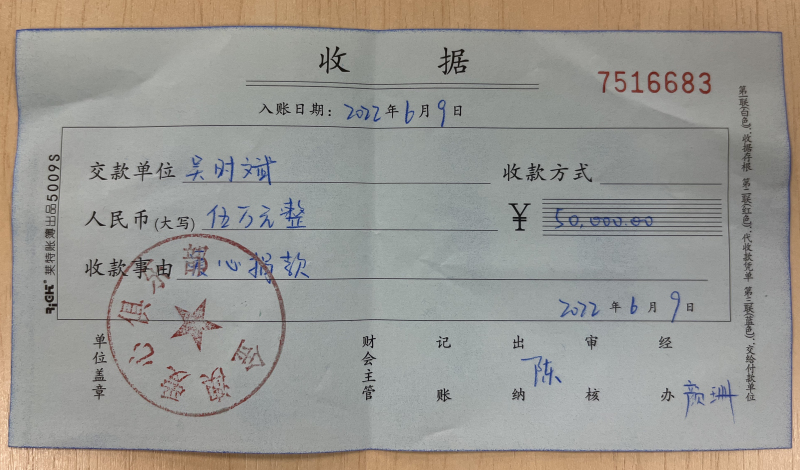 收据
7516683
入账日期：2022年6月9日
交款单位 吴时斌 收款方式
人民币(大写) 伍万元整 ¥ 50,000.00
收款事由 爱心捐款
2022年6月9日
单位盖章 财会主管 记账 出纳 陈 审核 经办 颜珊
莱特账簿出品5009S
第一联(白色)：收据存根 第二联(红色)：代收款凭单 第三联(蓝色)：交给付款单位